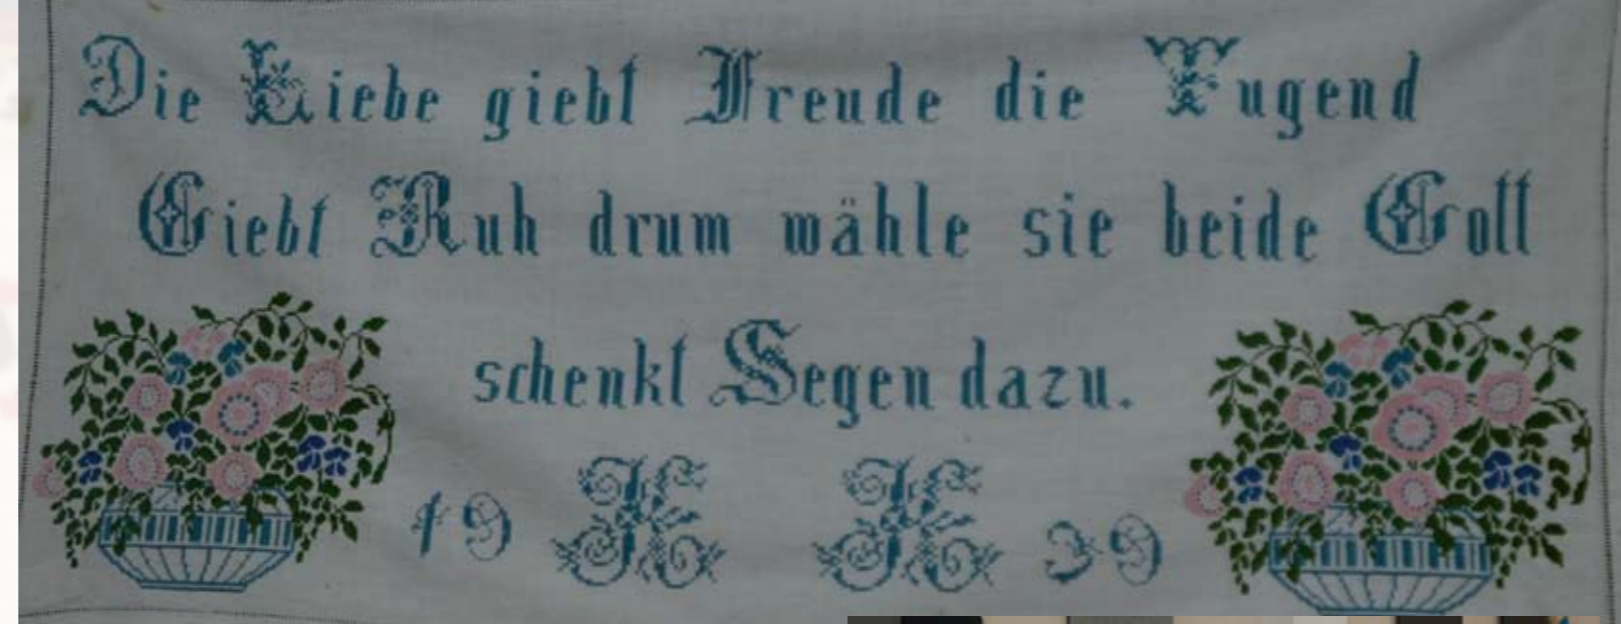 Die Liebe giebt Freude die Tugend
Giebt Ruh drum wähle sie beide Gott
schenkt Segen dazu.
19 K K 39